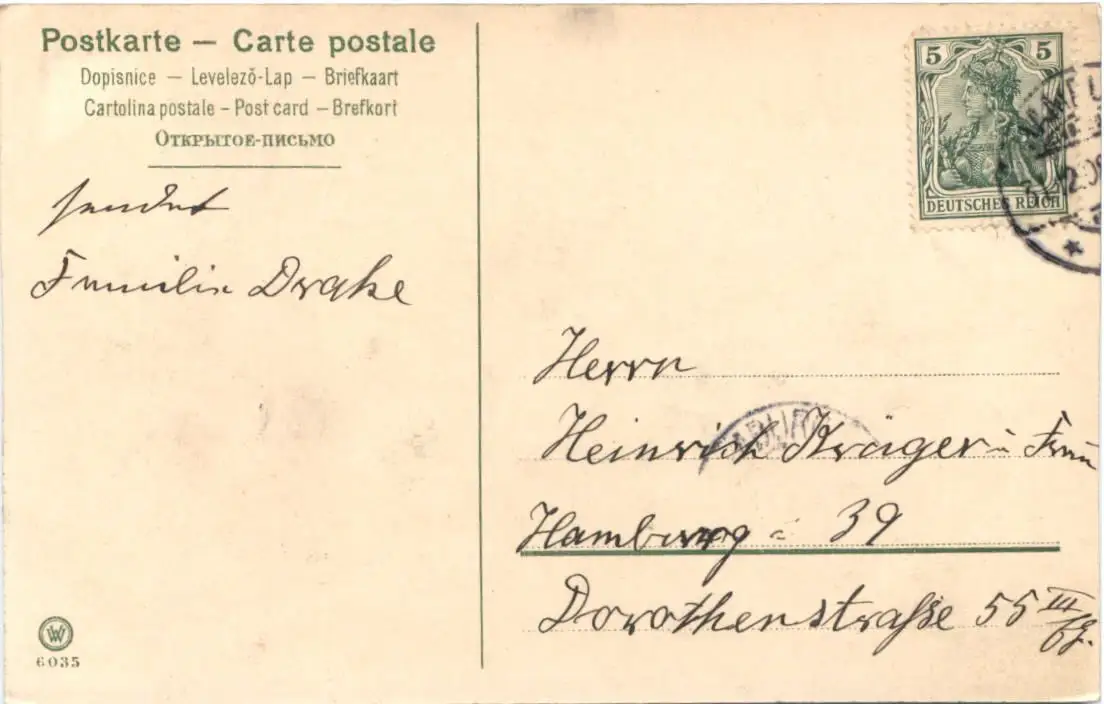 Postkarte — Carte postale
Dopisnice — Levelező-Lap — Briefkaart
Cartolina postale — Post card — Brefkort
Открытое-письмо
sendet
Familie Drake
5 5
DEUTSCHES REICH
31.12.09
Herrn
Heinrich Kräger u Frau
Hamburg = 39
Dorothenstraße 55 III
6035